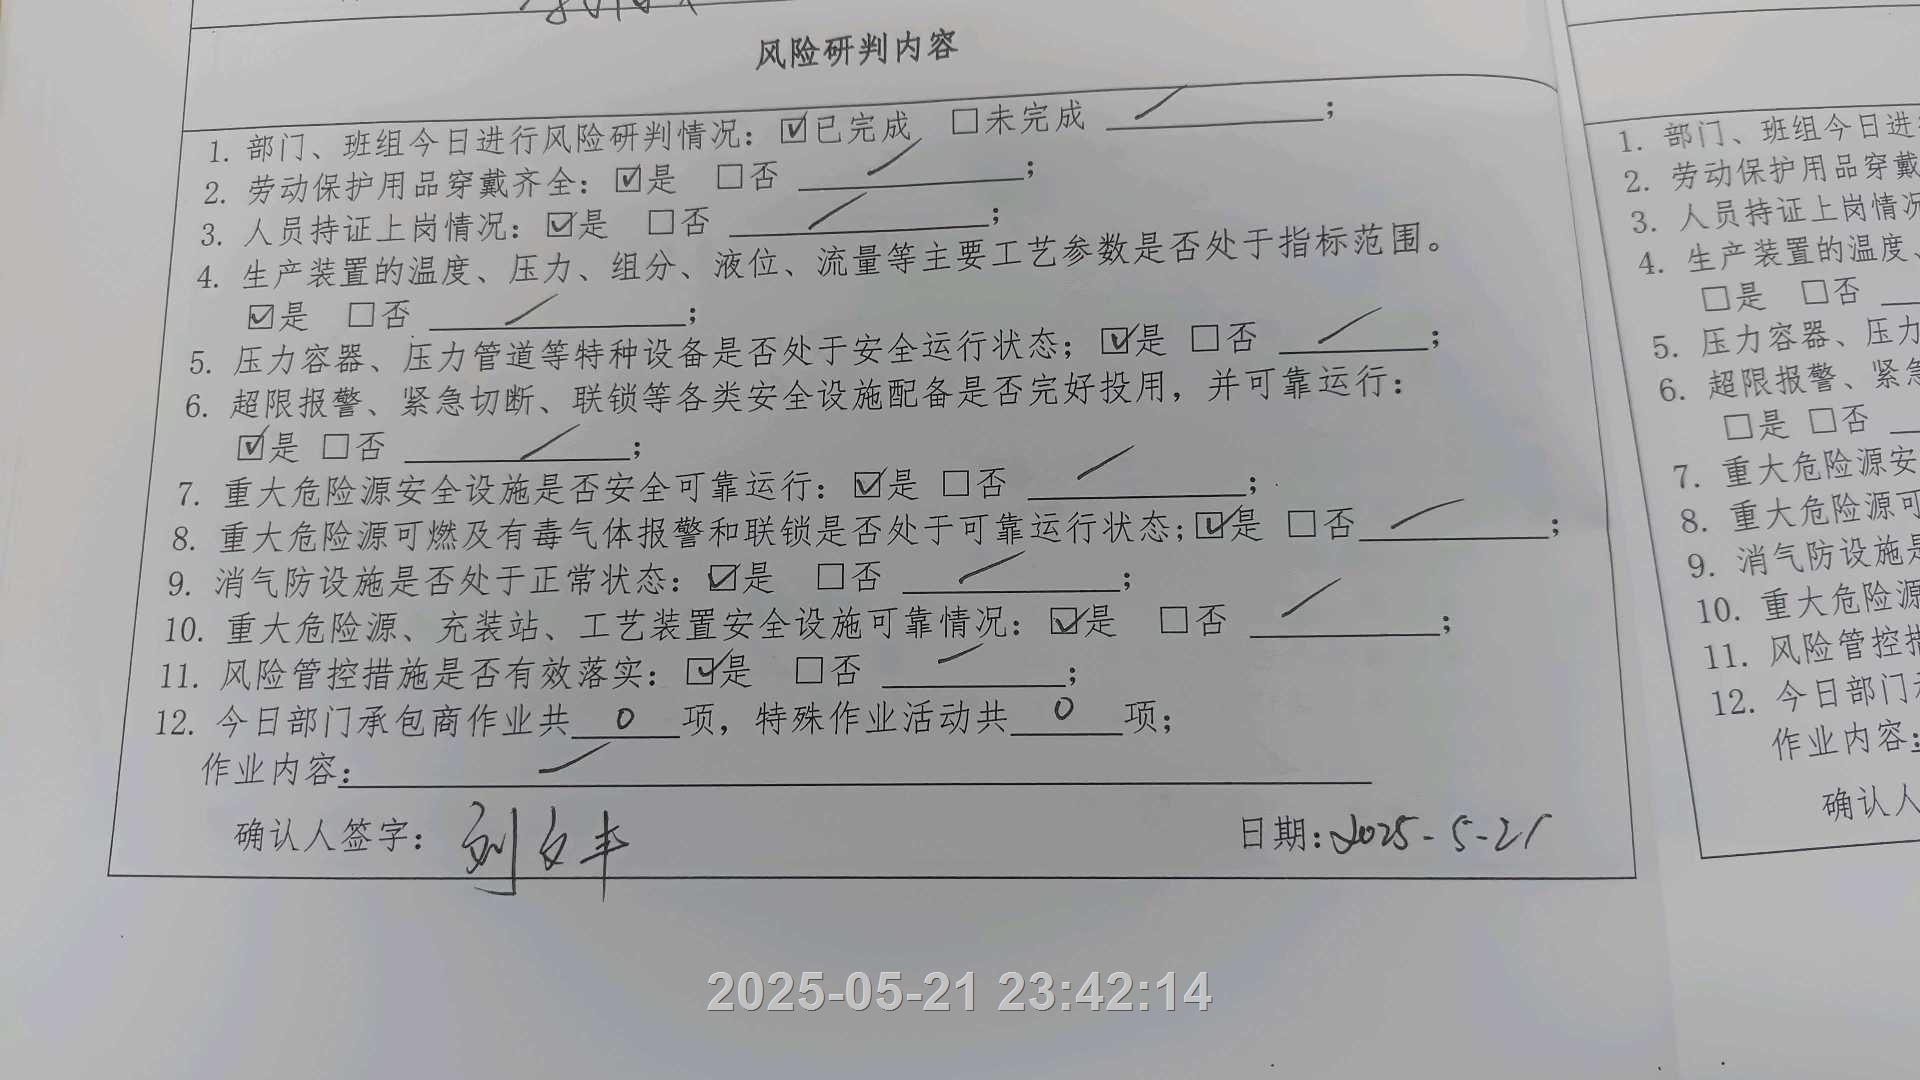 风险研判内容
1. 部门、班组今日进行风险研判情况：☑已完成 □未完成 /；
2. 劳动保护用品穿戴齐全：☑是 □否 /；
3. 人员持证上岗情况：☑是 □否 /；
4. 生产装置的温度、压力、组分、液位、流量等主要工艺参数是否处于指标范围。
☑是 □否 /；
5. 压力容器、压力管道等特种设备是否处于安全运行状态；☑是 □否 /；
6. 超限报警、紧急切断、联锁等各类安全设施配备是否完好投用，并可靠运行：
☑是 □否 /；
7. 重大危险源安全设施是否安全可靠运行：☑是 □否 /；
8. 重大危险源可燃及有毒气体报警和联锁是否处于可靠运行状态；☑是 □否 /；
9. 消气防设施是否处于正常状态：☑是 □否 /；
10. 重大危险源、充装站、工艺装置安全设施可靠情况：☑是 □否 /；
11. 风险管控措施是否有效落实：☑是 □否 /；
12. 今日部门承包商作业共 0 项，特殊作业活动共 0 项；
作业内容： /
确认人签字：刘文丰 日期：2025-5-21
1. 部门、班组今日进
2. 劳动保护用品穿戴
3. 人员持证上岗情况
4. 生产装置的温度、
□是 □否
5. 压力容器、压力
6. 超限报警、紧急
□是 □否
7. 重大危险源安
8. 重大危险源可
9. 消气防设施是
10. 重大危险源
11. 风险管控措
12. 今日部门承
作业内容：
确认人
2025-05-21 23:42:14